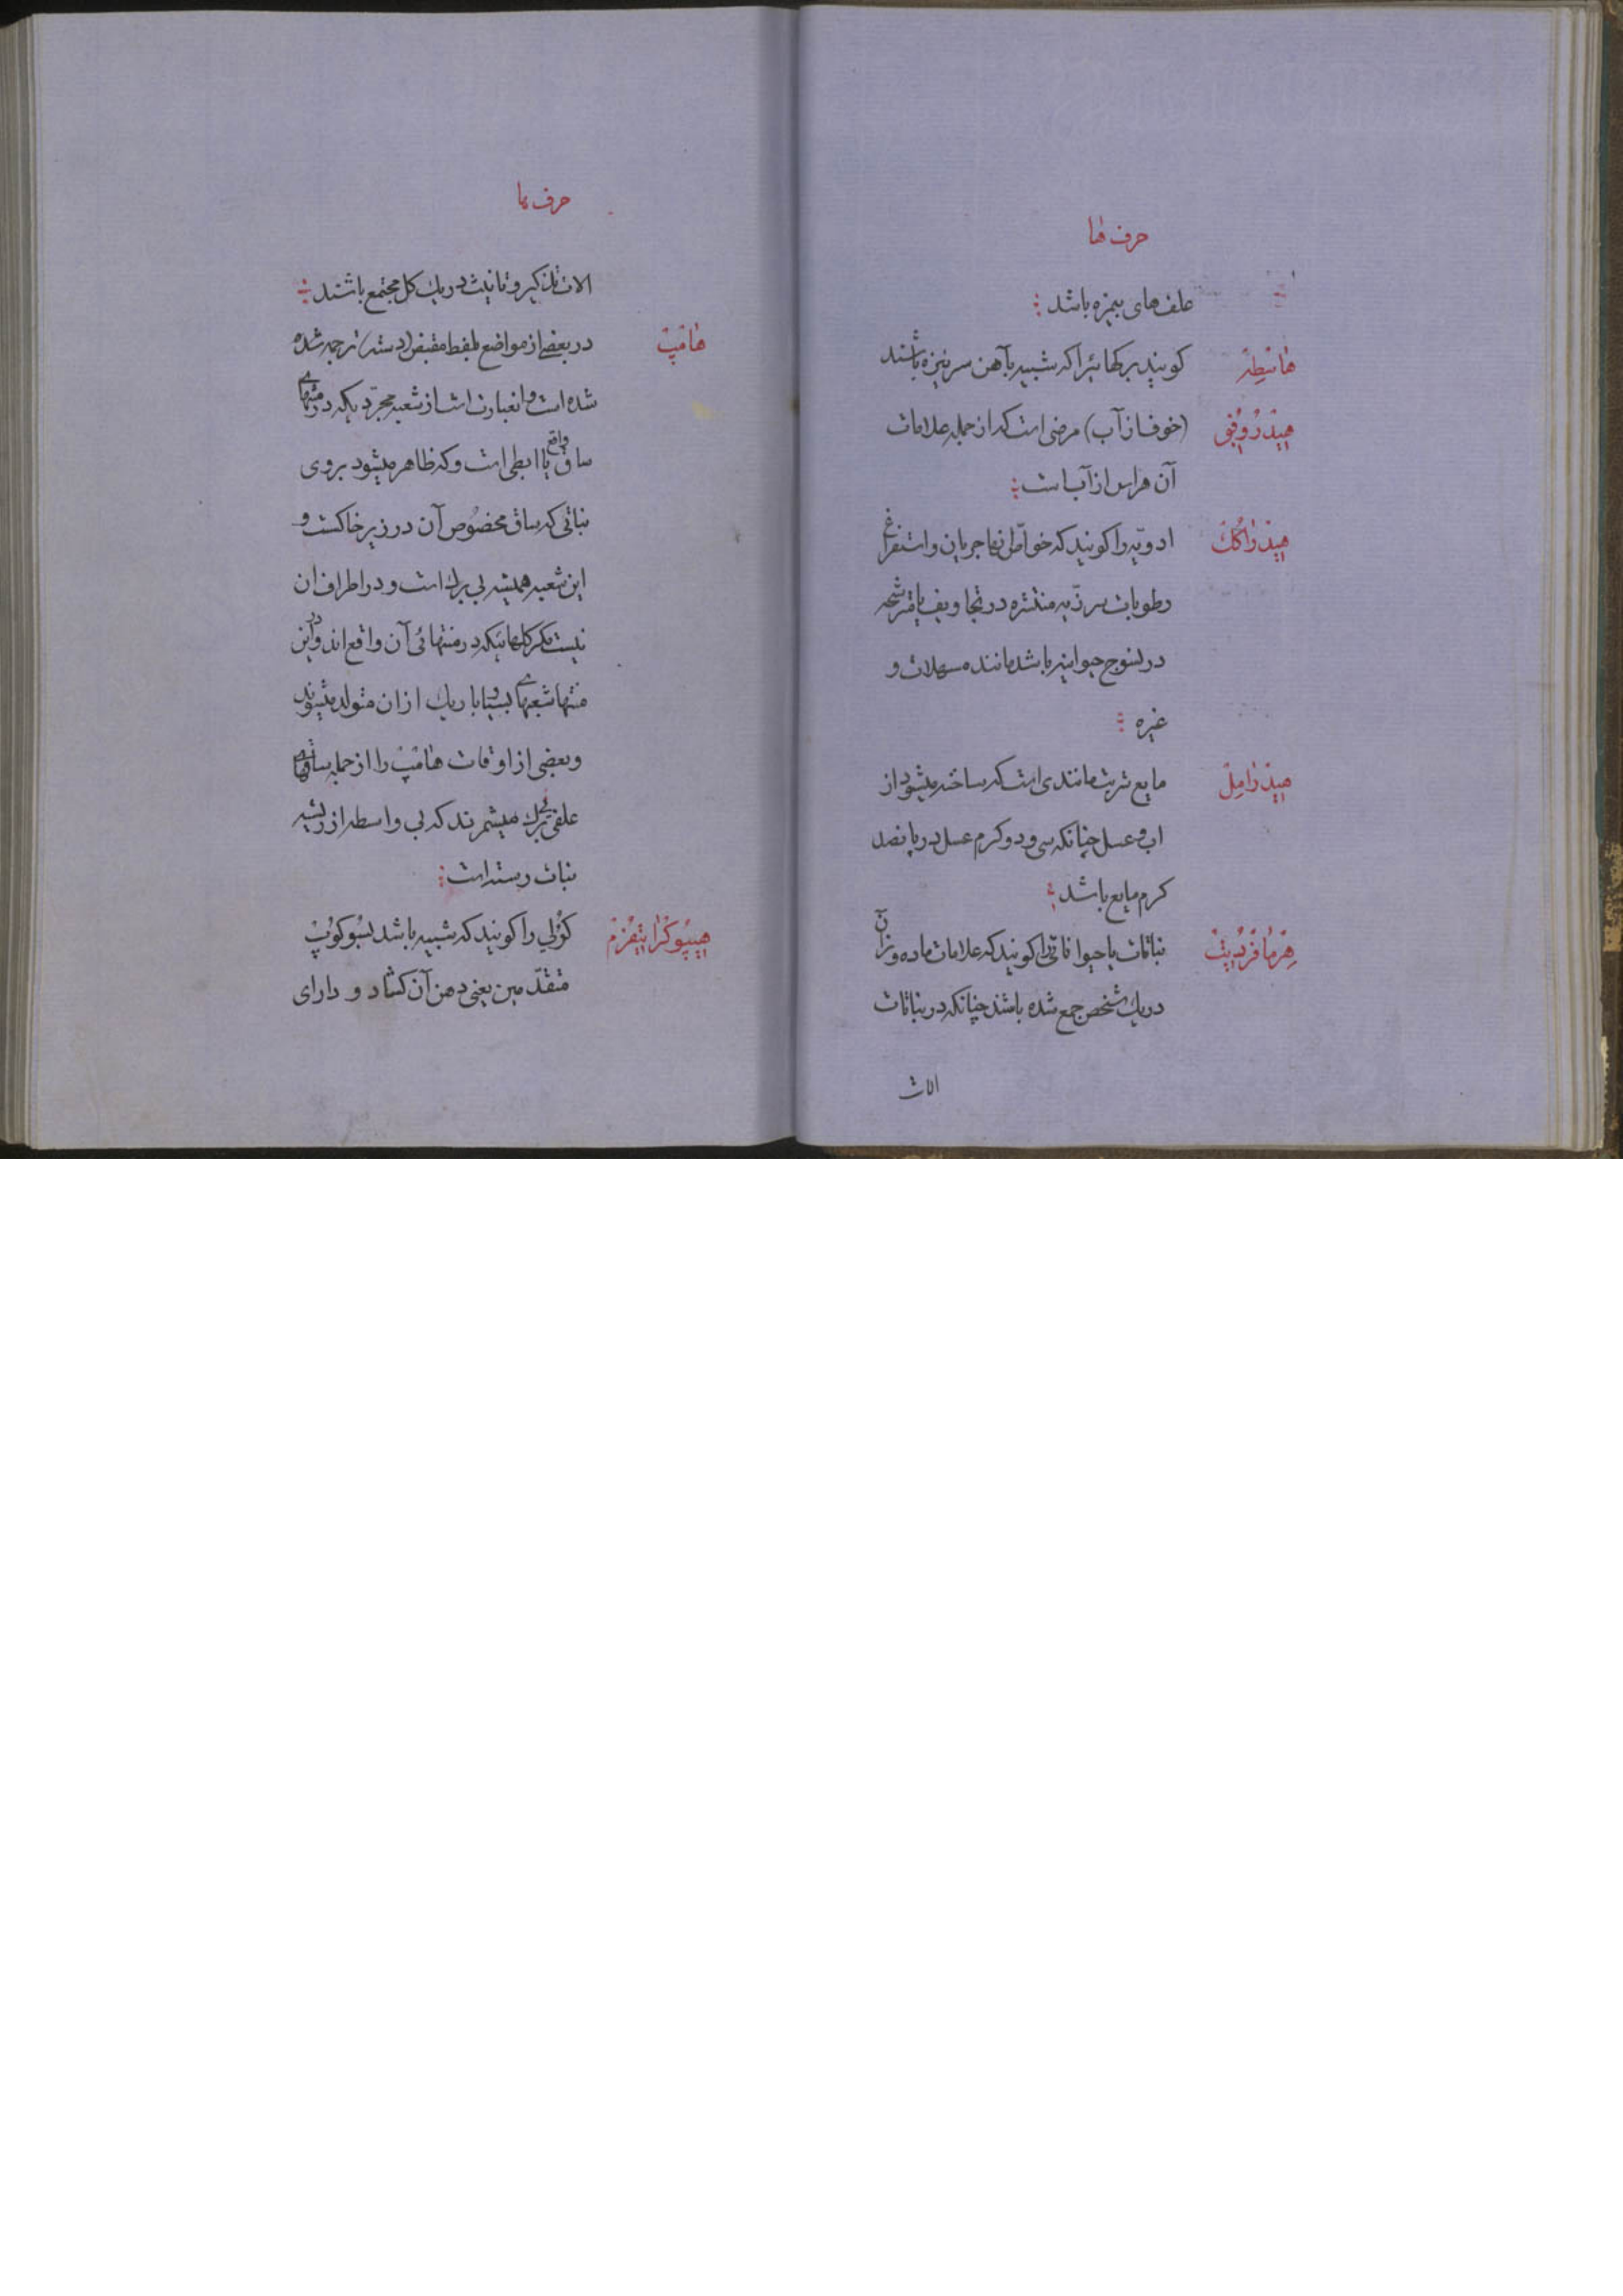 حرف ها
علف های بیمزه باشد
هاسطه کویند برکهائیرا که شبیه بآهن سر نیزه باشند
هیدروفبی (خوف از آب) مرضی است که از جمله علامات
آن هراس از آب است
هیدراکک ادویه را کویند که خواص آنها جریان و استفراغ
رطوبات سردیه منتشره در تجاویف یا مترشحه
در نسوج حیوانیه باشد مانند مسهلات و
غیره
هیدرامل مایع شربت مانندی است که ساخته میشود از
اب و عسل چنانکه سی و دو کرم عسل در پانصد
کرم مایع باشد
هرمافردیت نباتات یا حیواناتی را کویند که علامات ماده و نر آن
در یک شخص جمع شده باشند چنانکه در نباتات
الات
حرف ها
الات تذکیر و تانیث در یک کل مجتمع باشند
هامپ در بعضی از مواضع بلفظ مقبض (دسته) ترجمه شده
شده است و عبارت است از شعبه مجرد یکه در منتهای
ساق یا ابطی واقع است و که ظاهر میشود بروی
نباتی که ساق مخصوص آن در زیر خاکست و
این شعبه همیشه بی برك است و در اطراف ان
نیست مکر کلهائیکه در منتهائی آن واقع اند و در این
منتها شعبهای بسیار باریک از ان متولد میشوند
و بعضی از اوقات هامپ را از جمله ساقهای
علفی بی برك میشمرند که بی واسطه از ریشه
نبات رسته است
هیپوکراتیفرم کرلی را کویند که شبیه باشد بسبو کوپ
متقدمین یعنی دهن آن کشاد و دارای